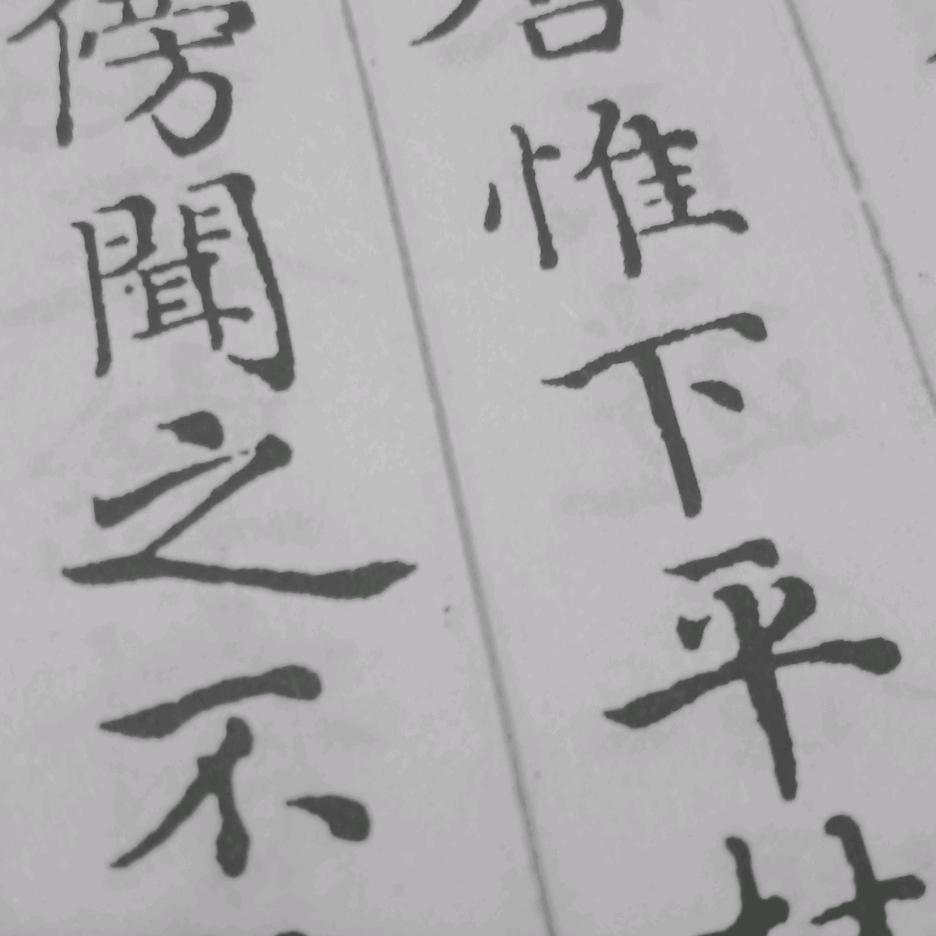 惟下平
傍聞之不